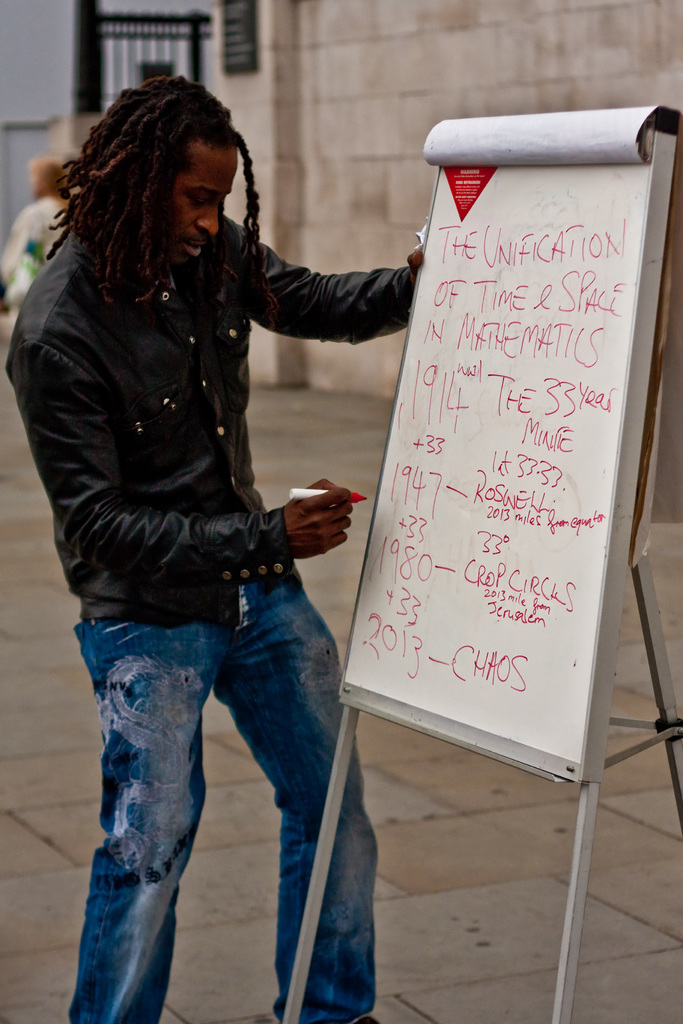 THE UNIFICATION
OF TIME & SPACE
IN MATHEMATICS
1914 THE 33 Year
MINUTE
+33
Lat 33.33.
1947 – ROSWELL.
2013 miles from equator
+33
33°
1980 – CROP CIRCLES
2013 mile from
Jerusalem
+33
2013 – CHAOS